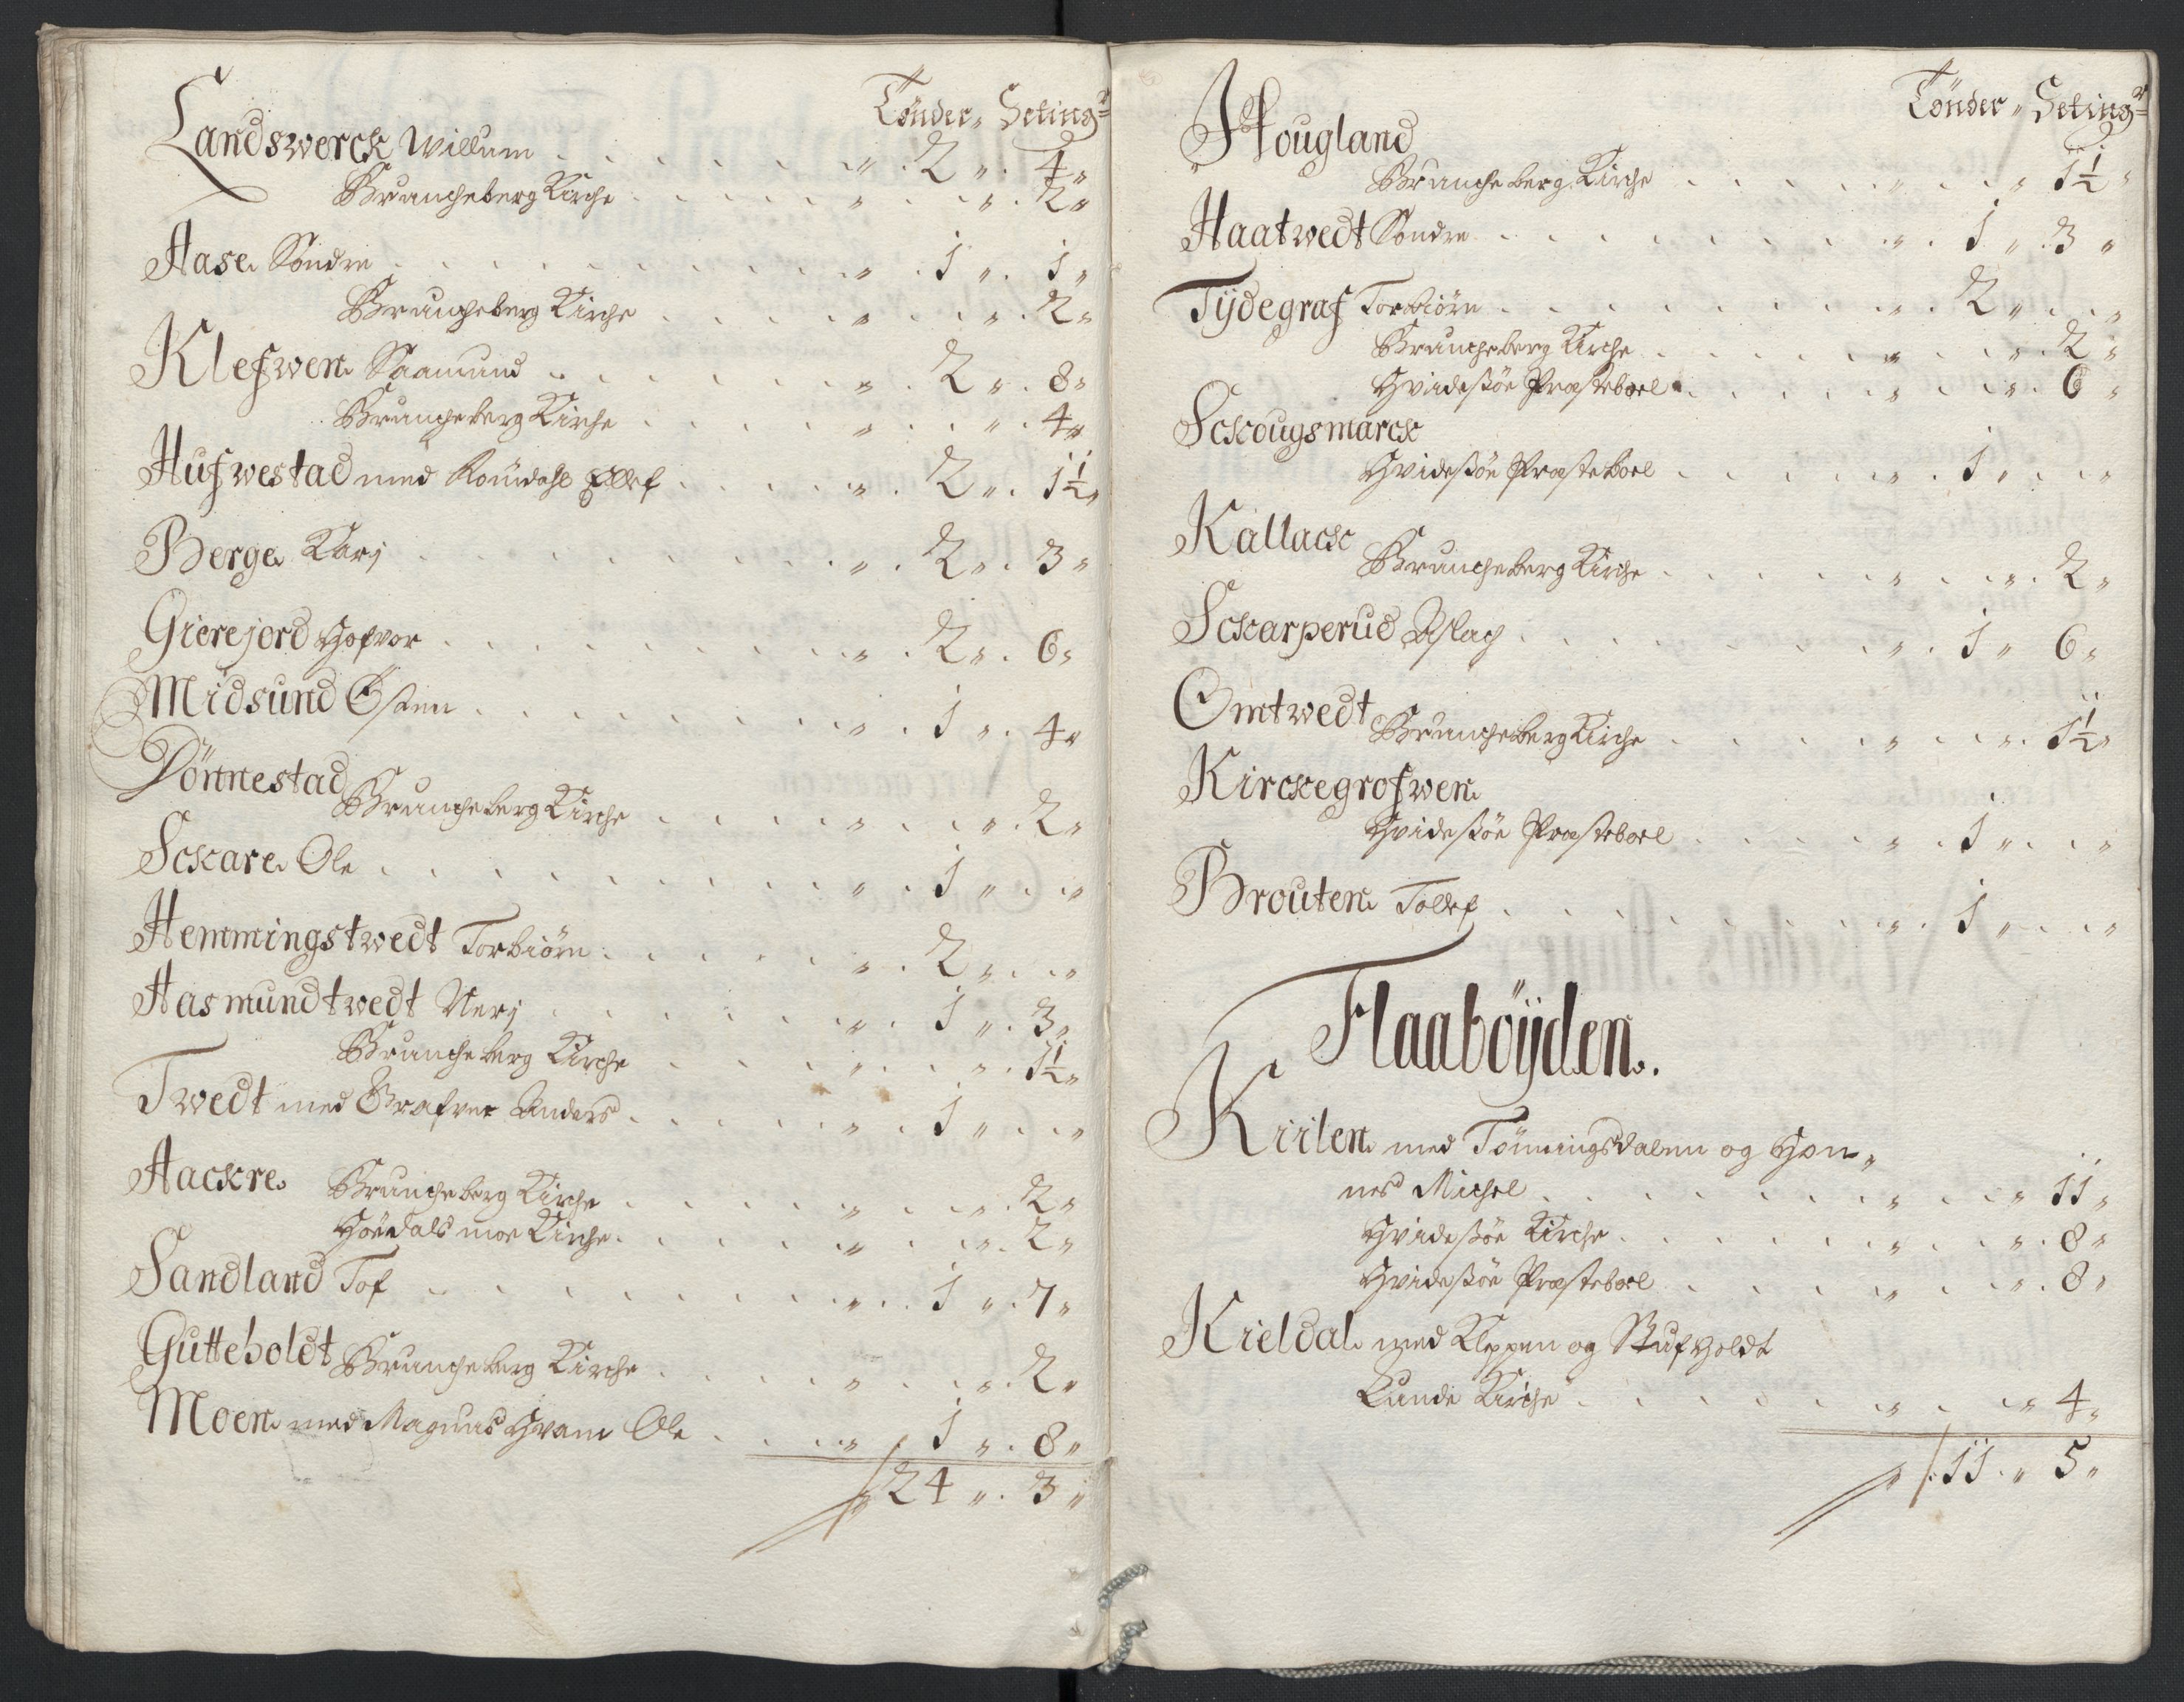 Tönder „ Setingr
Landswerck Willum . . . . „ . 2 „ . 4 „
Bruncheberg Kirche . . . . „ . . „ . 2 „
Aase Söndre . . . . „ . 1 „ . 1 „
Bruncheberg Kirche . . . . „ . . „ . 2 „
Klefwen Saamund . . . . „ . 2 „ . 8 „
Bruncheberg Kirche . . . . „ . . „ . 4 „
Hufwestad med Romdahl Ellef . . . . „ . 2 „ . 1½ „
Berge Karj . . . . „ . 2 „ . 3 „
Gierejord Gofvor . . . . „ . 2 „ . 6 „
Midsund Östen . . . . „ . 1 „ . 4 „
Dönnestad
Bruncheberg Kirche . . . . „ . . „ . 2 „
Sckare Ole . . . . „ . 1 „ . . „
Hemmingstwedt Torbiörn . . . . „ . 2 „ . . „
Aasmundtwedt Nerj . . . . „ . 1 „ . 3 „
Bruncheberg Kirche . . . . „ . . „ . 1½ „
Twedt med Grafver Anders . . . . „ . 1 „ . . „
Aackre Bruncheberg Kirche . . . . „ . . „ . 2 „
Höidalsmoe Kirche . . . . „ . . „ . 2 „
Sandland Tof . . . . „ . 1 „ . 7 „
Gutteholdt Bruncheberg Kirche . . . . „ . . „ . 2 „
Moen med Magnus Hvam Ole . . . . „ 1 „ . 8 „
„ 24 „ . 3 „
Tönder „ Setingr
Hougland
Bruncheberg Kirche . . . . „ . . „ 1½ „
Haatwedt Söndre . . . . „ . 1 „ . 3 „
Tÿdegraf Torbiörn . . . . „ . 2 „ . . „
Bruncheberg Kirche . . . . „ . . „ . 2 „
Hvideßöe Præsteboel . . . . „ . . „ . 6 „
Sckougsmarck
Hvideßöe Præsteboel . . . . „ . 1 „ . . „
Kallack
Bruncheberg Kirche . . . . „ . . „ . 2 „
Sckarperud Aslach . . . . „ . 1 „ 6 „
Omtwedt
Bruncheberg Kirche . . . . „ . . „ . 1½ „
Kirckegrofwen
Hvideßöe Præsteboel . . . . „ . 1 „ . . „
Brouten Tollef . . . . „ . 1 „ . . „
Flaaböÿden.
Kiilen med Tönningsdalen og Hon„
nes Michel . . . . „ . . „ 11 „
Hvideßöe Kirche . . . . „ . . „ . 8 „
Hvideßöe Præsteboel . . . . „ . . „ . 8 „
Kieldal med Kleppen og Stufholdt
Lunde Kirche . . . . „ . . „ 4 „
„ 11 . „ 5 „